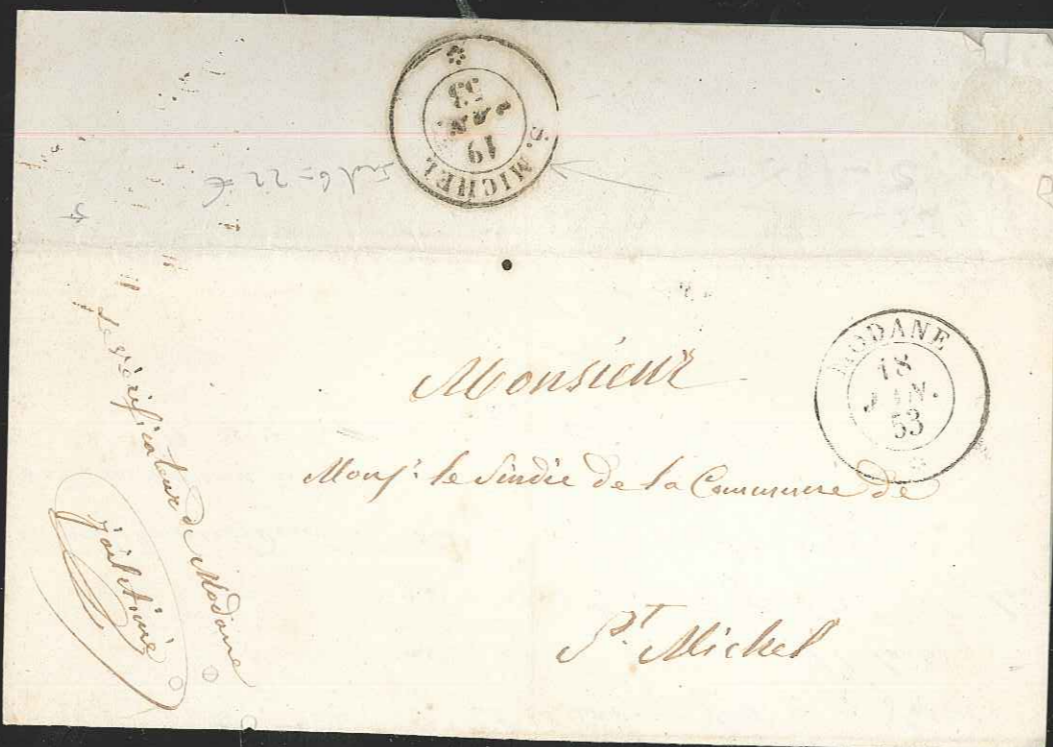 S. MICHEL
19
JAN.
53
MODANE
18
JAN.
53
Monsieur
Monsr. le Sindic de la Commune de
St. Michel
Le vérificateur de Modane